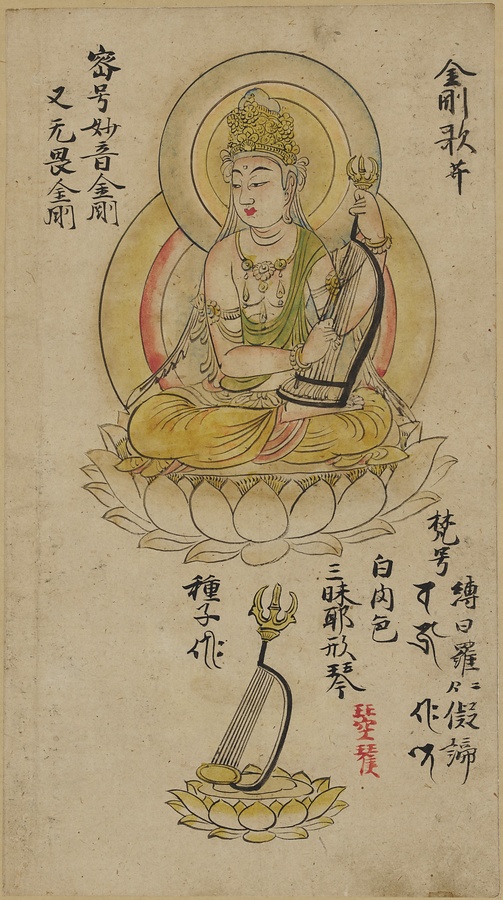 金剛歌𦬇
密号妙音金剛
又无畏金剛
梵号
縛日羅 諦
白肉色
三昧耶形琴
種子